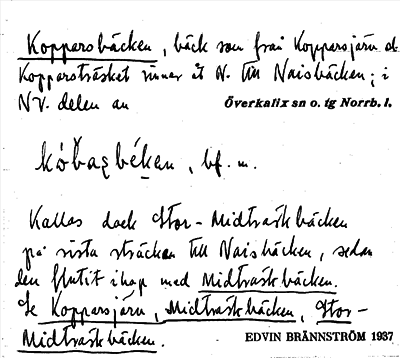 Kopparsbäcken, bäck som från Kopparsjärv o.
Kopparsträsket rinner åt N. till Naisbäcken; i
NV. delen av
Överkalix sn o. tg Norrb. l.
bf. m.
Kallas dock Stor-Midträskbäcken
på sista sträckan till Naisbäcken, sedan
den flutit ihop med Midträskbäcken.
Se Kopparsjärv, Midträskbäcken, Stor-
Midträskbäcken.
EDVIN BRÄNNSTRÖM 1937